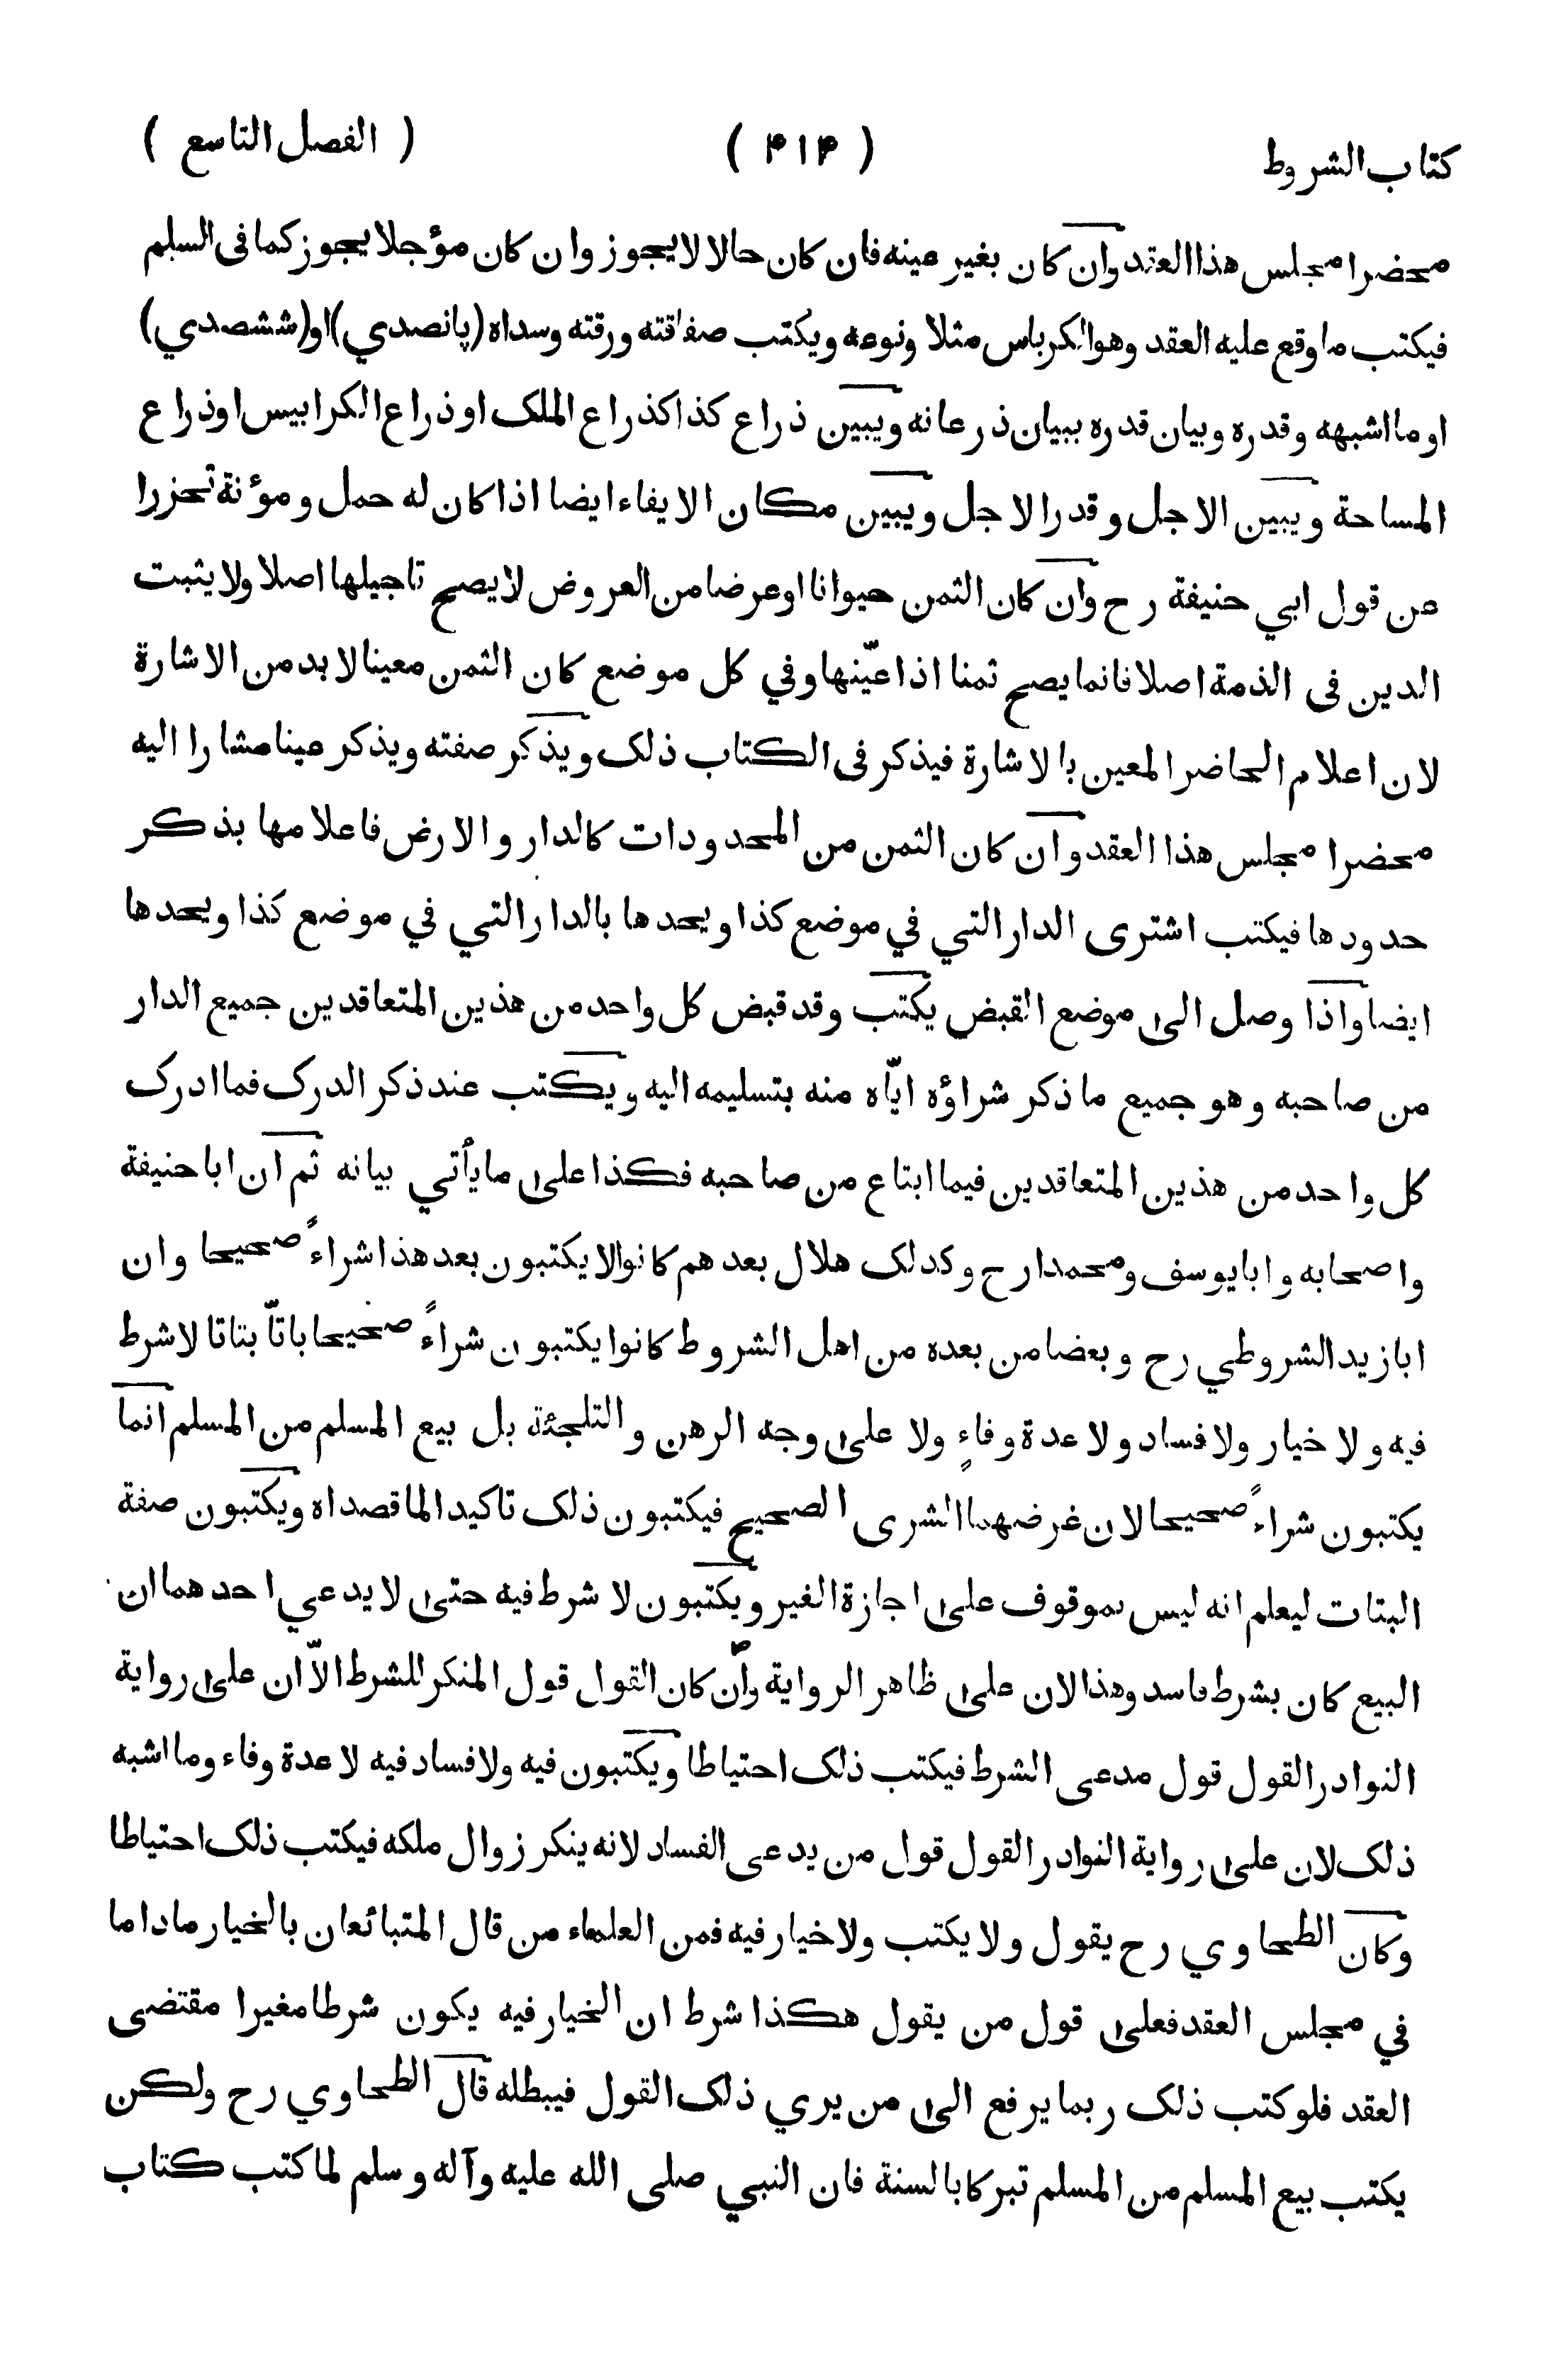 كتاب الشروط ( ۴۱۴ ) ( الفصل التاسع )
محضرا مجلس هذا العقد وان كان بغير عينه فان كان حالا لا يجوز وان كان مؤجلا يجوز كما في السلم
فيكتب ما وقع عليه العقد وهو الكرباس مثلا ونوعه ويكتب صفاقته ورقته وسداه (پانصدي) او (ششصدي)
او ما اشبهه وقدره وبيان قدره ببيان ذرعانه ويبين ذراع كذا كذراع الملك او ذراع الكرابيس او ذراع
المساحة ويبين الاجل وقدر الاجل ويبين مكان الايفاء ايضا اذا كان له حمل ومؤنة تحزرا
عن قول ابي حنيفة رح وان كان الثمن حيوانا او عرضا من العروض لا يصح تاجيلها اصلا ولا يثبت
الدين في الذمة اصلا فانما يصح ثمنا اذا عيّنها وفي كل موضع كان الثمن معينا لا بد من الاشارة
لان اعلام الحاضر المعين بالاشارة فيذكر في الكتاب ذلك ويذكر صفته ويذكر عينا مشارا اليه
محضرا مجلس هذا العقد وان كان الثمن من المحدودات كالدار والارض فاعلامها بذكر
حدودها فيكتب اشترى الدار التي في موضع كذا ويحدها بالدار التي في موضع كذا ويحدها
ايضا واذا وصل الى موضع القبض يكتب وقد قبض كل واحد من هذين المتعاقدين جميع الدار
من صاحبه وهو جميع ما ذكر شراؤه ايّاه منه بتسليمه اليه ويكتب عند ذكر الدرك فما ادرك
كل واحد من هذين المتعاقدين فيما ابتاع من صاحبه فكذا على ما يأتي بيانه ثم ان ابا حنيفة
واصحابه وابا يوسف ومحمدا رح وكدلك هلال بعدهم كانوا لا يكتبون بعد هذا شراءً صحيحا وان
ابا زيد الشروطي رح وبعضا من بعده من اهل الشروط كانوا يكتبون شراءً صحيحا باتاّ بتاتا لا شرط
فيه ولا خيار ولا فساد ولا عدة وفاءٍ ولا على وجه الرهن والتلجئة بل بيع المسلم من المسلم انما
يكتبون شراءً صحيحا لان غرضهما الشرى الصحيح فيكتبون ذلك تاكيدا لما قصداه ويكتبون صفة
البتات ليعلم انه ليس بموقوف على اجازة الغير ويكتبون لا شرط فيه حتى لا يدعي احدهما ان
البيع كان بشرط فاسد وهذا لان على ظاهر الرواية وان كان القول قول المنكر للشرط الاّ ان على رواية
النوادر القول قول مدعى الشرط فيكتب ذلك احتياطا ويكتبون فيه ولا فساد فيه لا عدة وفاء وما اشبه
ذلك لان على رواية النوادر القول قول من يدعى الفساد لانه ينكر زوال ملكه فيكتب ذلك احتياطا
وكان الطحاوي رح يقول ولا يكتب ولا خيار فيه فمن العلماء من قال المتبائعان بالخيار ماداما
في مجلس العقد فعلى قول من يقول هكذا شرط ان الخيار فيه يكون شرطا مغيرا مقتضى
العقد فلو كتب ذلك ربما يرفع الى من يري ذلك القول فيبطله قال الطحاوي رح ولكن
يكتب بيع المسلم من المسلم تبركا بالسنة فان النبي صلى الله عليه وآله وسلم لما كتب كتاب